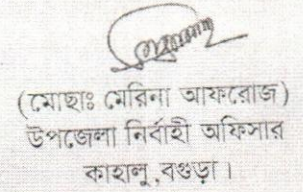 (মোছাঃ মেরিনা আফরোজ)
উপজেলা নির্বাহী অফিসার
কাহালু,বগুড়া।